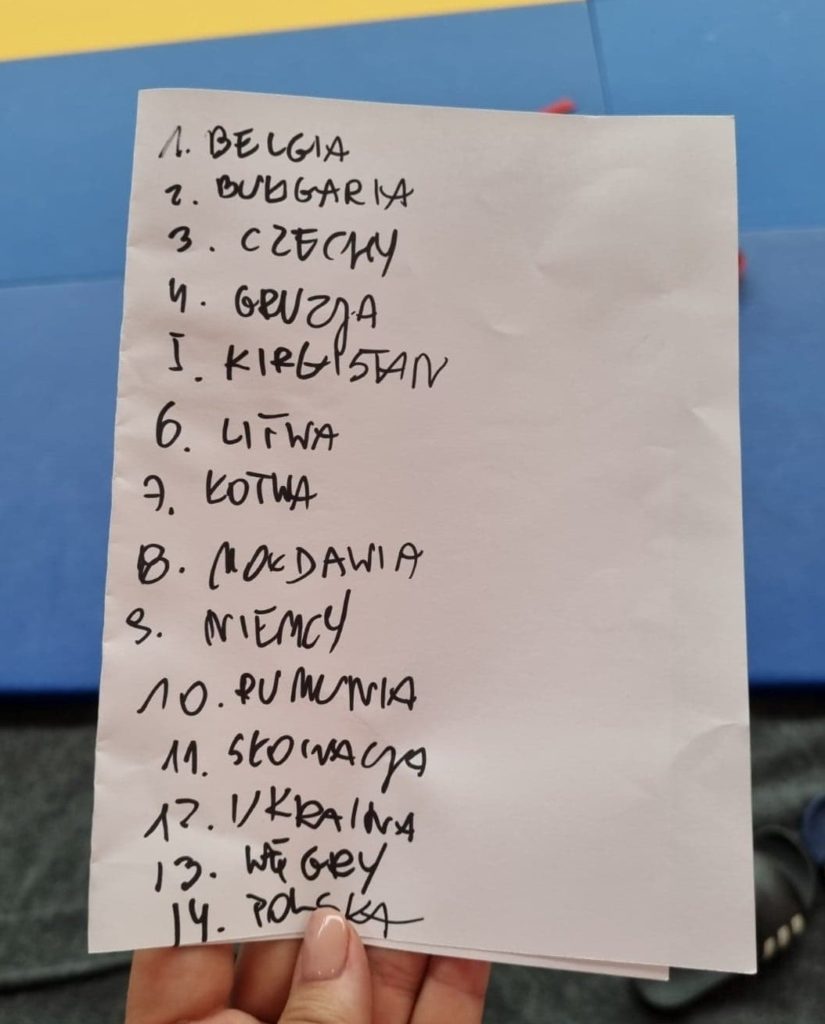 1. BELGIA
2. BUŁGARIA
3. CZECHY
4. GRUZJA
5. KIRGISTAN
6. LITWA
7. ŁOTWA
8. MOŁDAWIA
9. NIEMCY
10. RUMUNIA
11. SŁOWACJA
12. UKRAINA
13. WĘGRY
14. POLSKA